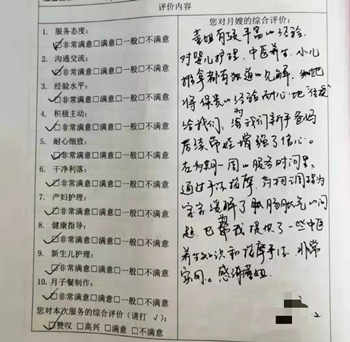 评价内容
1. 服务态度:
☑非常满意□满意□一般□不满意
2. 沟通交流:
☑非常满意□满意□一般□不满意
3. 经验水平:
☑非常满意□满意□一般□不满意
4. 积极主动:
☑非常满意□满意□一般□不满意
5. 耐心细致:
☑非常满意□满意□一般□不满意
6. 干净利落:
☑非常满意□满意□一般□不满意
7. 产妇护理:
☑非常满意□满意□一般□不满意
8. 健康指导:
☑非常满意□满意□一般□不满意
9. 新生儿护理:
☑非常满意□满意□一般□不满意
10. 月子餐制作:
☑非常满意□满意□一般□不满意
您对本次服务的综合评价(请打 √):
☑赞叹 □高兴 □满意 □不满意
您对月嫂的综合评价:
姐有很丰富的经验,
对婴儿护理、中医养生、小儿
推拿都有独道的见解,她
将保贵的经验耐心地
给我们,给我们新手爸妈
增强了信心。
在 一周的服务时间里,
通过手法按摩、 调理为
宝宝缓解了肠胀气的问
题,也帮我提供了一些中医
养生知识和按摩手法,非常
实用。感谢 姐